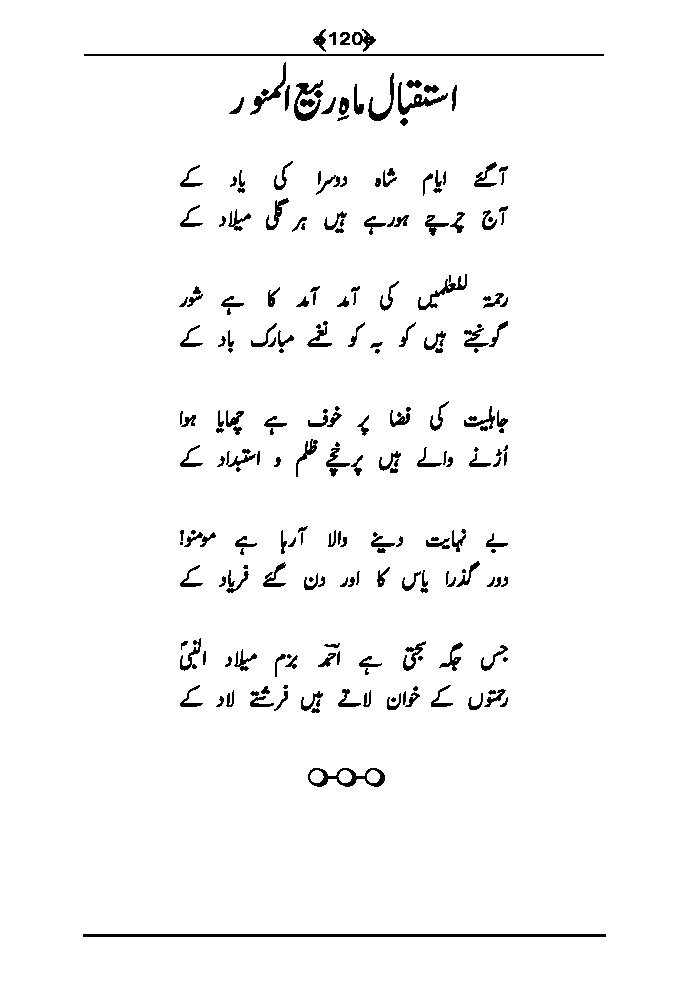 120
استقبال ماہِ ربیع المنور
آگئے ایام شاہ دوسرا کی یاد کے
آج چرچے ہورہے ہیں ہر گلی میلاد کے
رحمۃ للعٰلمیں کی آمد آمد کا ہے شور
گونجتے ہیں کو بہ کو نغمے مبارک باد کے
جاہلیت کی فضا پر خوف ہے چھایا ہوا
اُڑنے والے ہیں پرخچے ظلم و استبداد کے
بے نہایت دینے والا آرہا ہے مومنو!
دور گذرا یاس کا اور دن گئے فریاد کے
جس جگہ سجتی ہے احمدؔ بزم میلاد النبیؐ
رحمتوں کے خوان لاتے ہیں فرشتے لاد کے